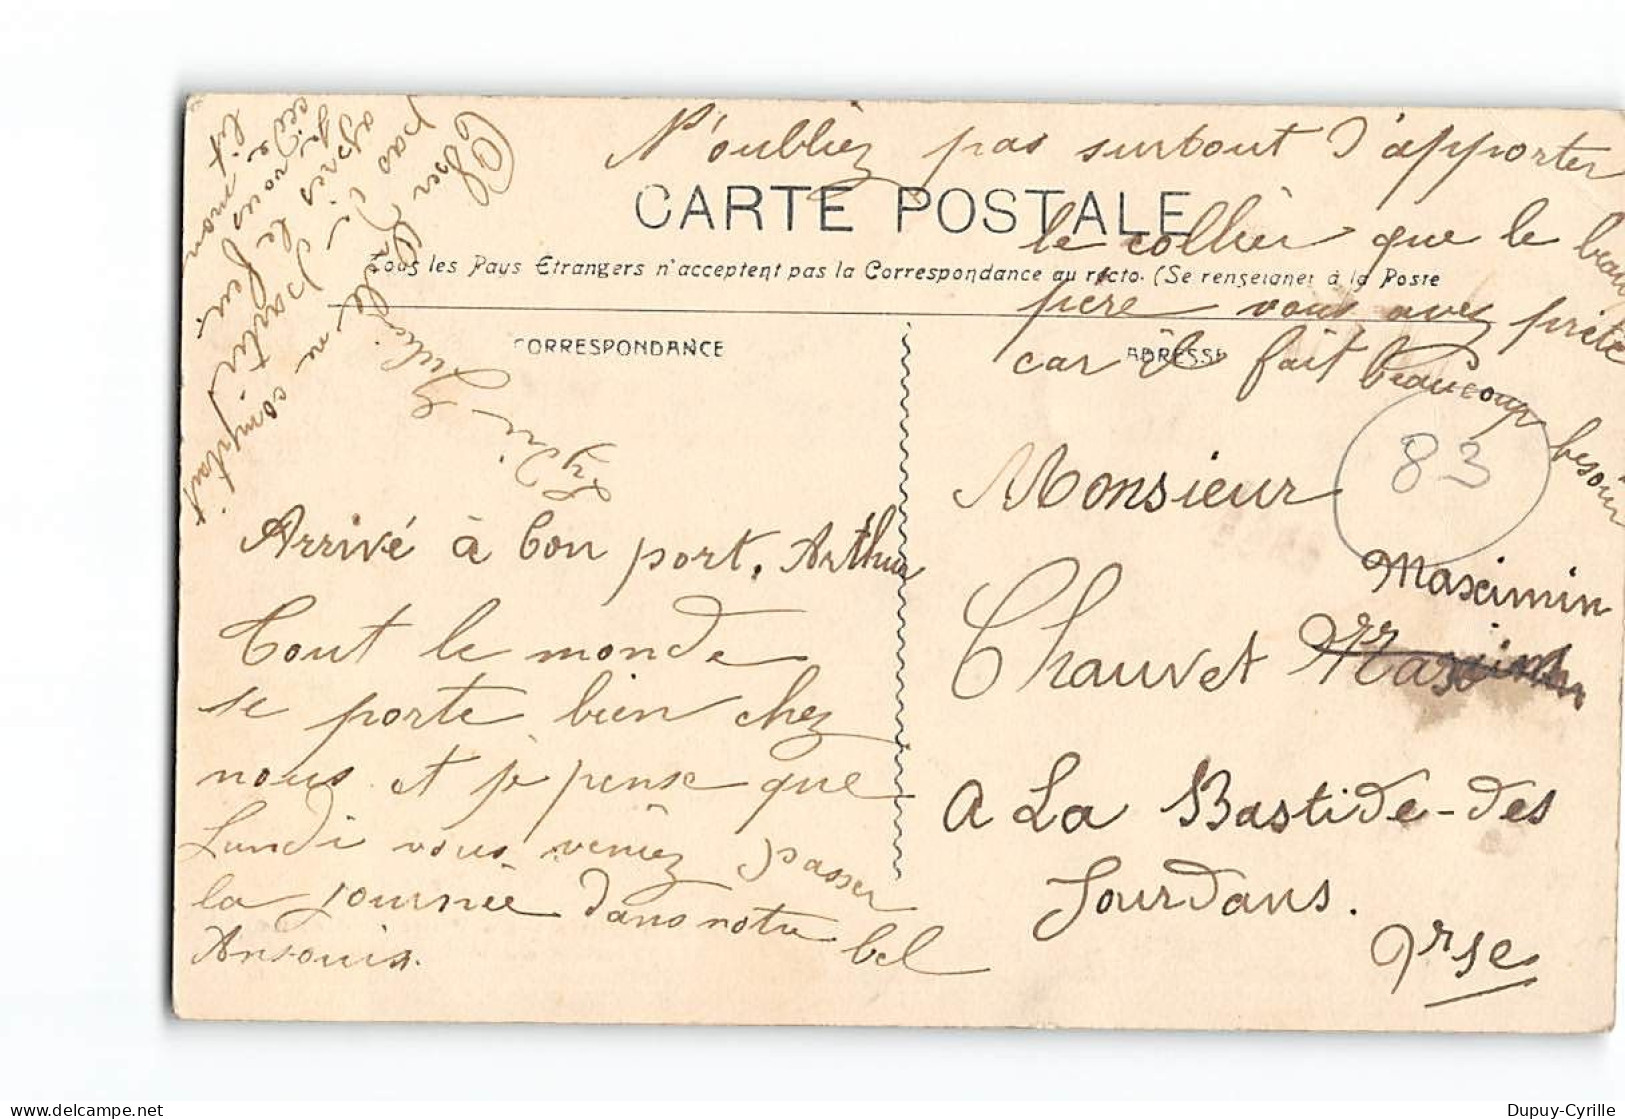 N'oubliez pas surtout d'apporter
le collier que le beau
père vous avez prêté
car il fait beaucoup besoin
CARTE POSTALE
Tous les Pays Etrangers n'acceptent pas la Correspondance au recto. (Se renseigner à la Poste
CORRESPONDANCE
ADRESSE
pas
après le partir
je vous
lit
Julie
Arrivé à bon port. Arthur
Tout le monde
se porte bien chez
nous et je pense que
Lundi vous veniez passer
la journée dans notre bel
Ansouis.
83
Monsieur
Maximin
Chauvet Maximin
A La Bastide-des
Jourdans.
Vrse
Dupuy-Cyrille